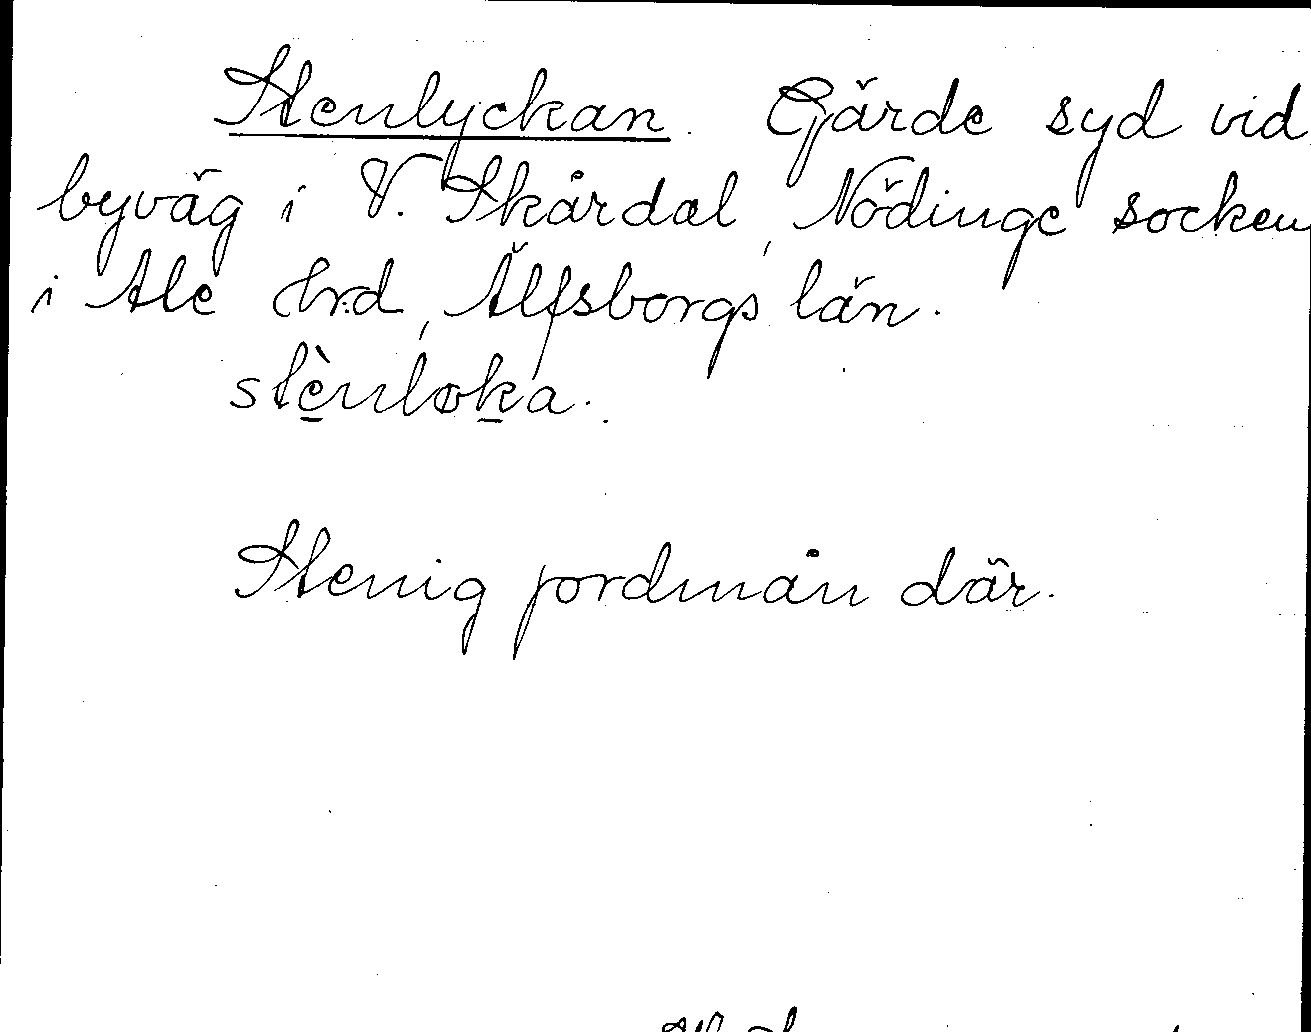 Stenlyckan. Gärde syd vid
byväg i V. Skårdal, Nödinge socken
i Ale Hrd, Älfsborgs län.
stènløka.
Stenig jordmån där.